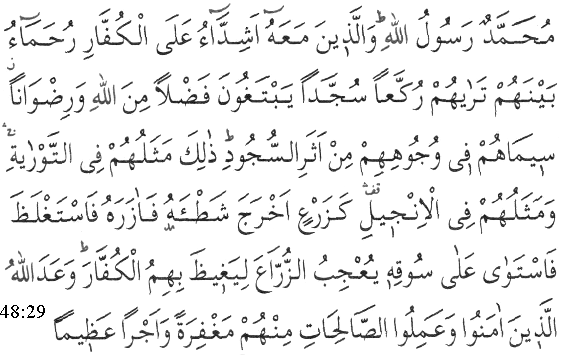 مُحَمَّدٌ رَسُولُ اللهِۜ وَالَّذ۪ينَ مَعَهُٓ اَشِدَّٓاءُ عَلَى الْكُفَّارِ رُحَمَٓاءُ
بَيْنَهُمْ تَرٰيهُمْ رُكَّعاً سُجَّداً يَبْتَغُونَ فَضْلاً مِنَ اللهِ وَرِضْوَاناًۘ
س۪يمَاهُمْ ف۪ي وُجُوهِهِمْ مِنْ اَثَرِ السُّجُودِۜ ذٰلِكَ مَثَلُهُمْ فِي التَّوْرٰيةِۚ
وَمَثَلُهُمْ فِي الْاِنْج۪يلِ۠ كَزَرْعٍ اَخْرَجَ شَطْـَٔهُ فَاٰزَرَهُ فَاسْتَغْلَظَ
فَاسْتَوٰى عَلٰى سُوقِه۪ يُعْجِبُ الزُّرَّاعَ لِيَغ۪يظَ بِهِمُ الْكُفَّارَۜ وَعَدَ اللهُ
الَّذ۪ينَ اٰمَنُوا وَعَمِلُوا الصَّالِحَاتِ مِنْهُمْ مَغْفِرَةً وَاَجْراً عَظ۪يماً
48:29